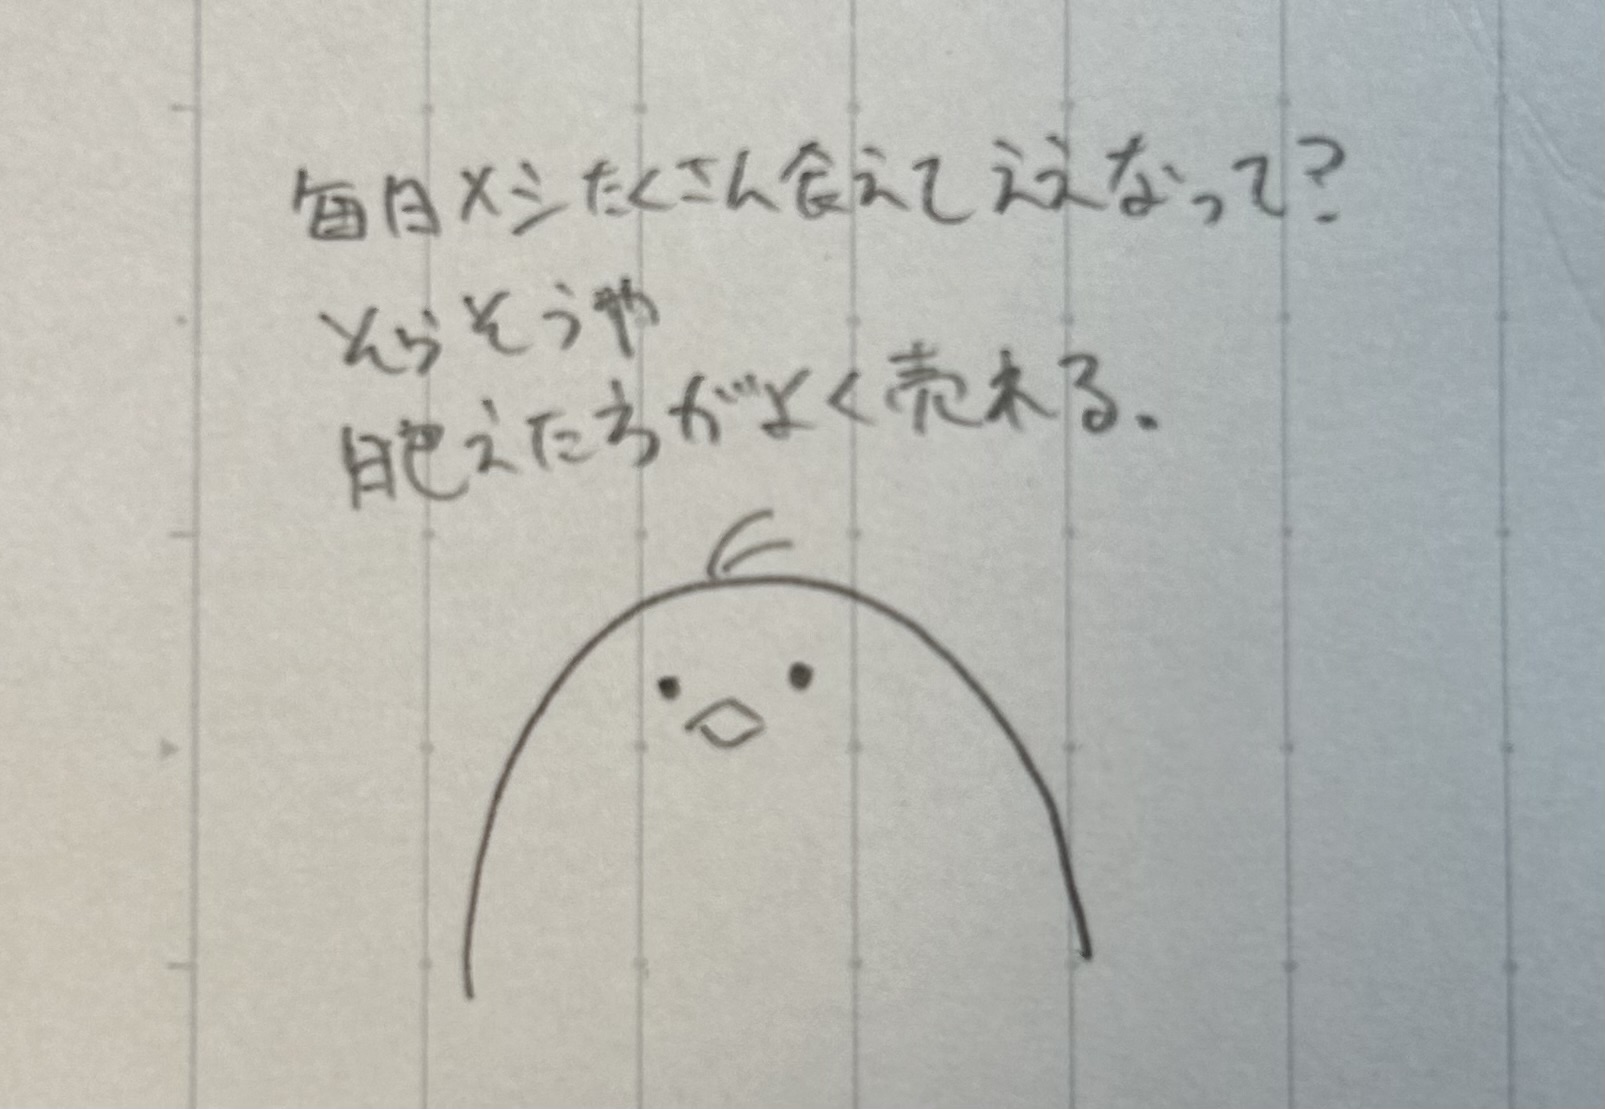 毎日メシたくさん食えてええなって?
そらそうや
肥えたろがよく売れる.